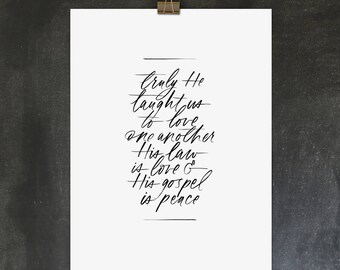 truly He
taught us
to love
one another
His law
is love &
His gospel
is peace